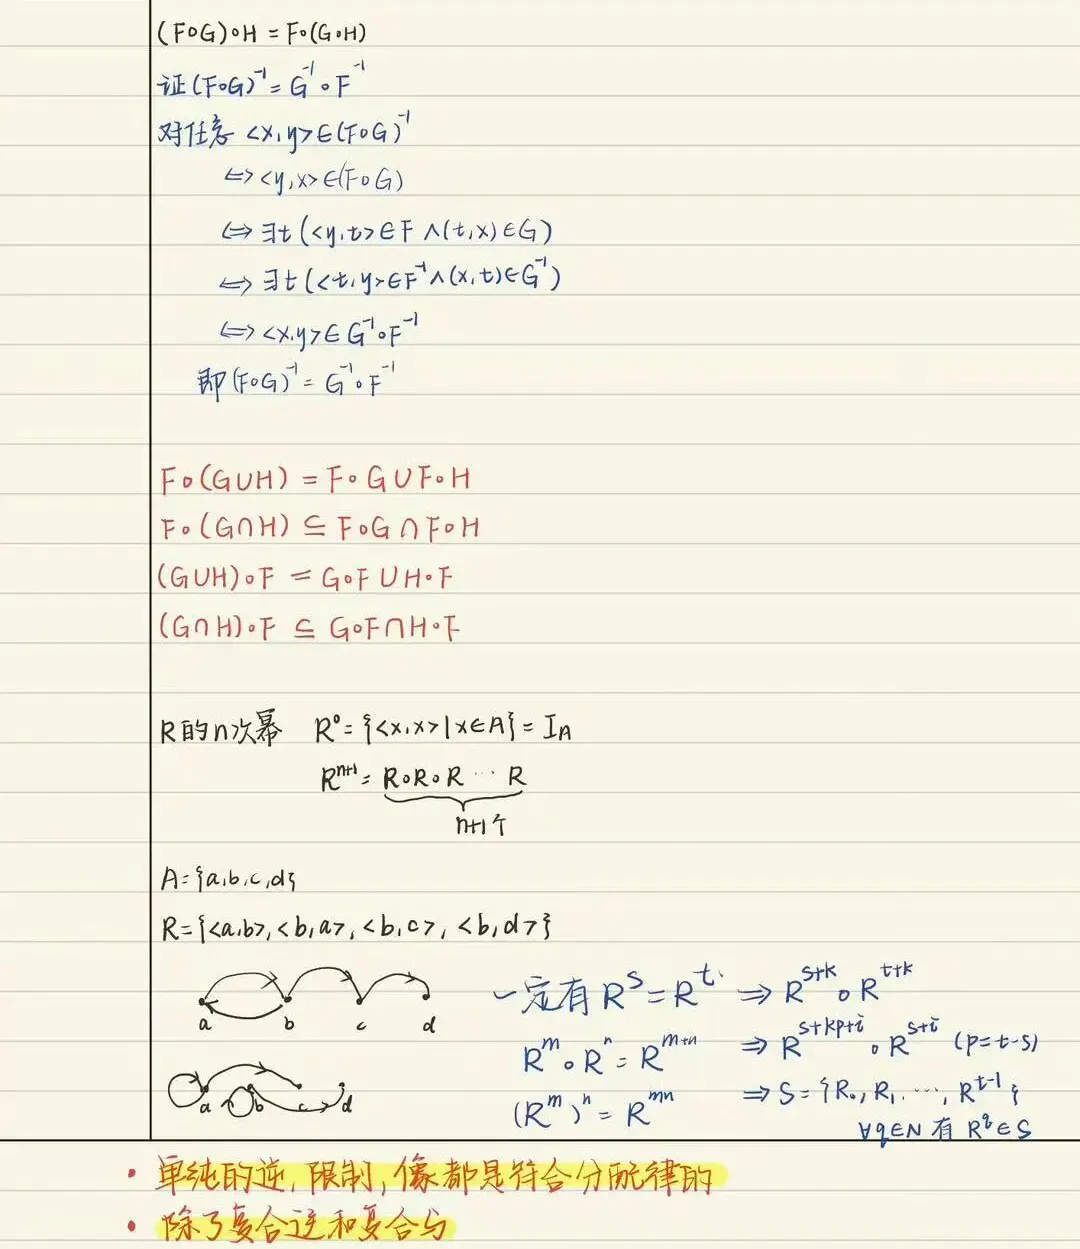 (F∘G)∘H = F∘(G∘H)
证(F∘G)⁻¹ = G⁻¹∘F⁻¹
对任意 <x,y>∈(F∘G)⁻¹
⇔ <y,x>∈(F∘G)
⇔ ∃t (<y,t>∈F ∧(t,x)∈G)
⇔ ∃t (<t,y>∈F⁻¹∧(x,t)∈G⁻¹)
⇔ <x,y>∈ G⁻¹∘F⁻¹
即(F∘G)⁻¹ = G⁻¹∘F⁻¹
F∘(G∪H) = F∘G∪F∘H
F∘(G∩H) ⊆ F∘G∩F∘H
(G∪H)∘F = G∘F∪H∘F
(G∩H)∘F ⊆ G∘F∩H∘F
R的n次幂 R⁰ = {<x,x>|x∈A} = I_A
Rⁿ⁺¹ = R∘R∘R ⋯ R
n+1个
A = {a,b,c,d}
R = {<a,b>,<b,a>,<b,c>,<b,d>}
a b c d
a b c d
一定有 Rˢ = Rᵗ ⇒ Rˢ⁺ᵏ∘Rᵗ⁺ᵏ
Rᵐ∘Rⁿ = Rᵐ⁺ⁿ ⇒ Rˢ⁺ᵏᵖ⁺ⁱ∘Rˢ⁺ⁱ (p=t-s)
(Rᵐ)ⁿ = Rᵐⁿ ⇒ S = {R₀,R₁ ⋯, Rᵗ⁻¹}
∀q∈N 有 R^q∈S
• 单纯的逆,限制,像都是符合分配律的
• 除了复合逆和复合与